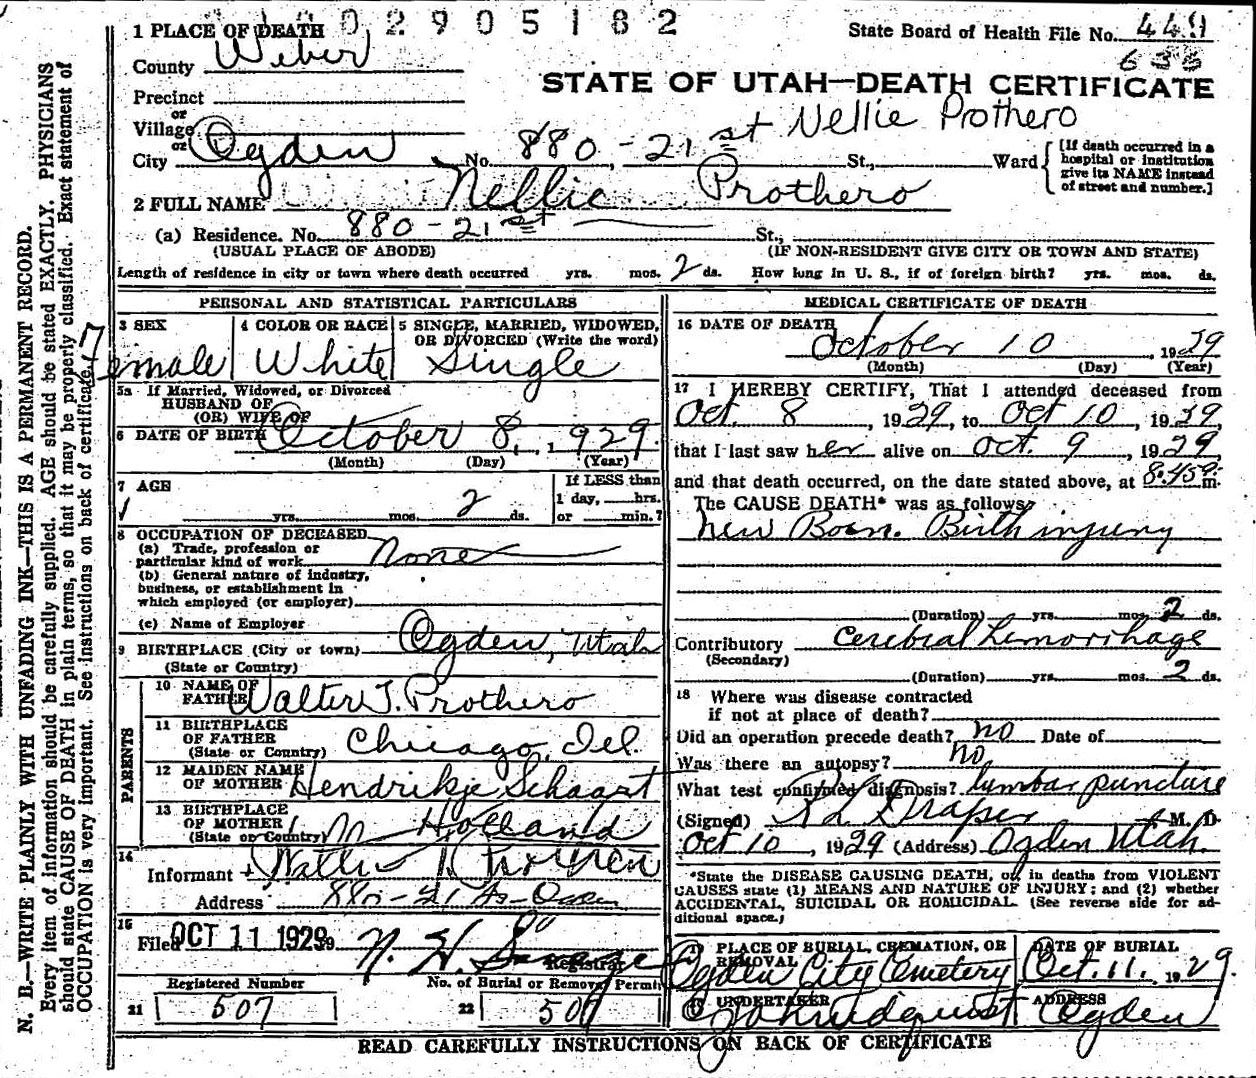 1 PLACE OF DEATH 002905182 State Board of Health File No. 449
County Weber 633
STATE OF UTAH—DEATH CERTIFICATE
Precinct
or
Village Nellie Prothero
or
City Ogden No. 880-21st St., Ward [If death occurred in a hospital or institution give its NAME instead of street and number.]
2 FULL NAME Nellie Prothero
(a) Residence. No. 880-21st St.,
(USUAL PLACE OF ABODE) (IF NON-RESIDENT GIVE CITY OR TOWN AND STATE)
Length of residence in city or town where death occurred yrs. mos. 2 ds. How long in U. S., if of foreign birth? yrs. mos. ds.
PERSONAL AND STATISTICAL PARTICULARS
3 SEX Female
4 COLOR OR RACE White
5 SINGLE, MARRIED, WIDOWED, OR DIVORCED (Write the word) Single
5a If Married, Widowed, or Divorced
HUSBAND OF
(OR) WIFE OF
6 DATE OF BIRTH October 8, 1929.
(Month) (Day) (Year)
7 AGE yrs. mos. 2 ds.
If LESS than
1 day, hrs.
or min.?
8 OCCUPATION OF DECEASED
(a) Trade, profession or
particular kind of work None
(b) General nature of industry,
business, or establishment in
which employed (or employer)
(c) Name of Employer
9 BIRTHPLACE (City or town) Ogden, Utah
(State or Country)
PARENTS
10 NAME OF FATHER Walter J. Prothero
11 BIRTHPLACE OF FATHER Chicago, Ill.
(State or Country)
12 MAIDEN NAME OF MOTHER Hendrikje Schaart
13 BIRTHPLACE OF MOTHER Holland
(State or Country)
14
Informant
Address 880-21 st-Ogden
15
Filed OCT 11 1929 9 Registrar
Registered Number No. of Burial or Removal Permit
21 507 22 507
MEDICAL CERTIFICATE OF DEATH
16 DATE OF DEATH October 10, 1929
(Month) (Day) (Year)
17 I HEREBY CERTIFY, That I attended deceased from
Oct. 8, 1929, to Oct 10, 1929
that I last saw her alive on Oct. 9, 1929,
and that death occurred, on the date stated above, at 8.45 m.
The CAUSE DEATH* was as follows:
New Born. Birth injury
(Duration) yrs. mos. 2 ds.
Contributory Cerebral hemorrhage
(Secondary)
(Duration) yrs. mos. 2 ds.
18 Where was disease contracted
if not at place of death?
Did an operation precede death? no Date of
Was there an autopsy? no
What test confirmed diagnosis? lumbar puncture
(Signed) Draper M. D.
Oct 10, 1929 (Address) Ogden Utah.
*State the DISEASE CAUSING DEATH, or, in deaths from VIOLENT
CAUSES state (1) MEANS AND NATURE OF INJURY; and (2) whether
ACCIDENTAL, SUICIDAL OR HOMICIDAL. (See reverse side for ad-
ditional space.)
PLACE OF BURIAL, CREMATION, OR REMOVAL Ogden City Cemetery
DATE OF BURIAL Oct. 11. 1929.
UNDERTAKER
ADDRESS Ogden
READ CAREFULLY INSTRUCTIONS ON BACK OF CERTIFICATE
N. B.—WRITE PLAINLY WITH UNFADING INK—THIS IS A PERMANENT RECORD.
Every item of information should be carefully supplied. AGE should be stated EXACTLY. PHYSICIANS
should state CAUSE OF DEATH in plain terms, so that it may be properly classified. Exact statement of
OCCUPATION is very important. See instructions on back of certificate.